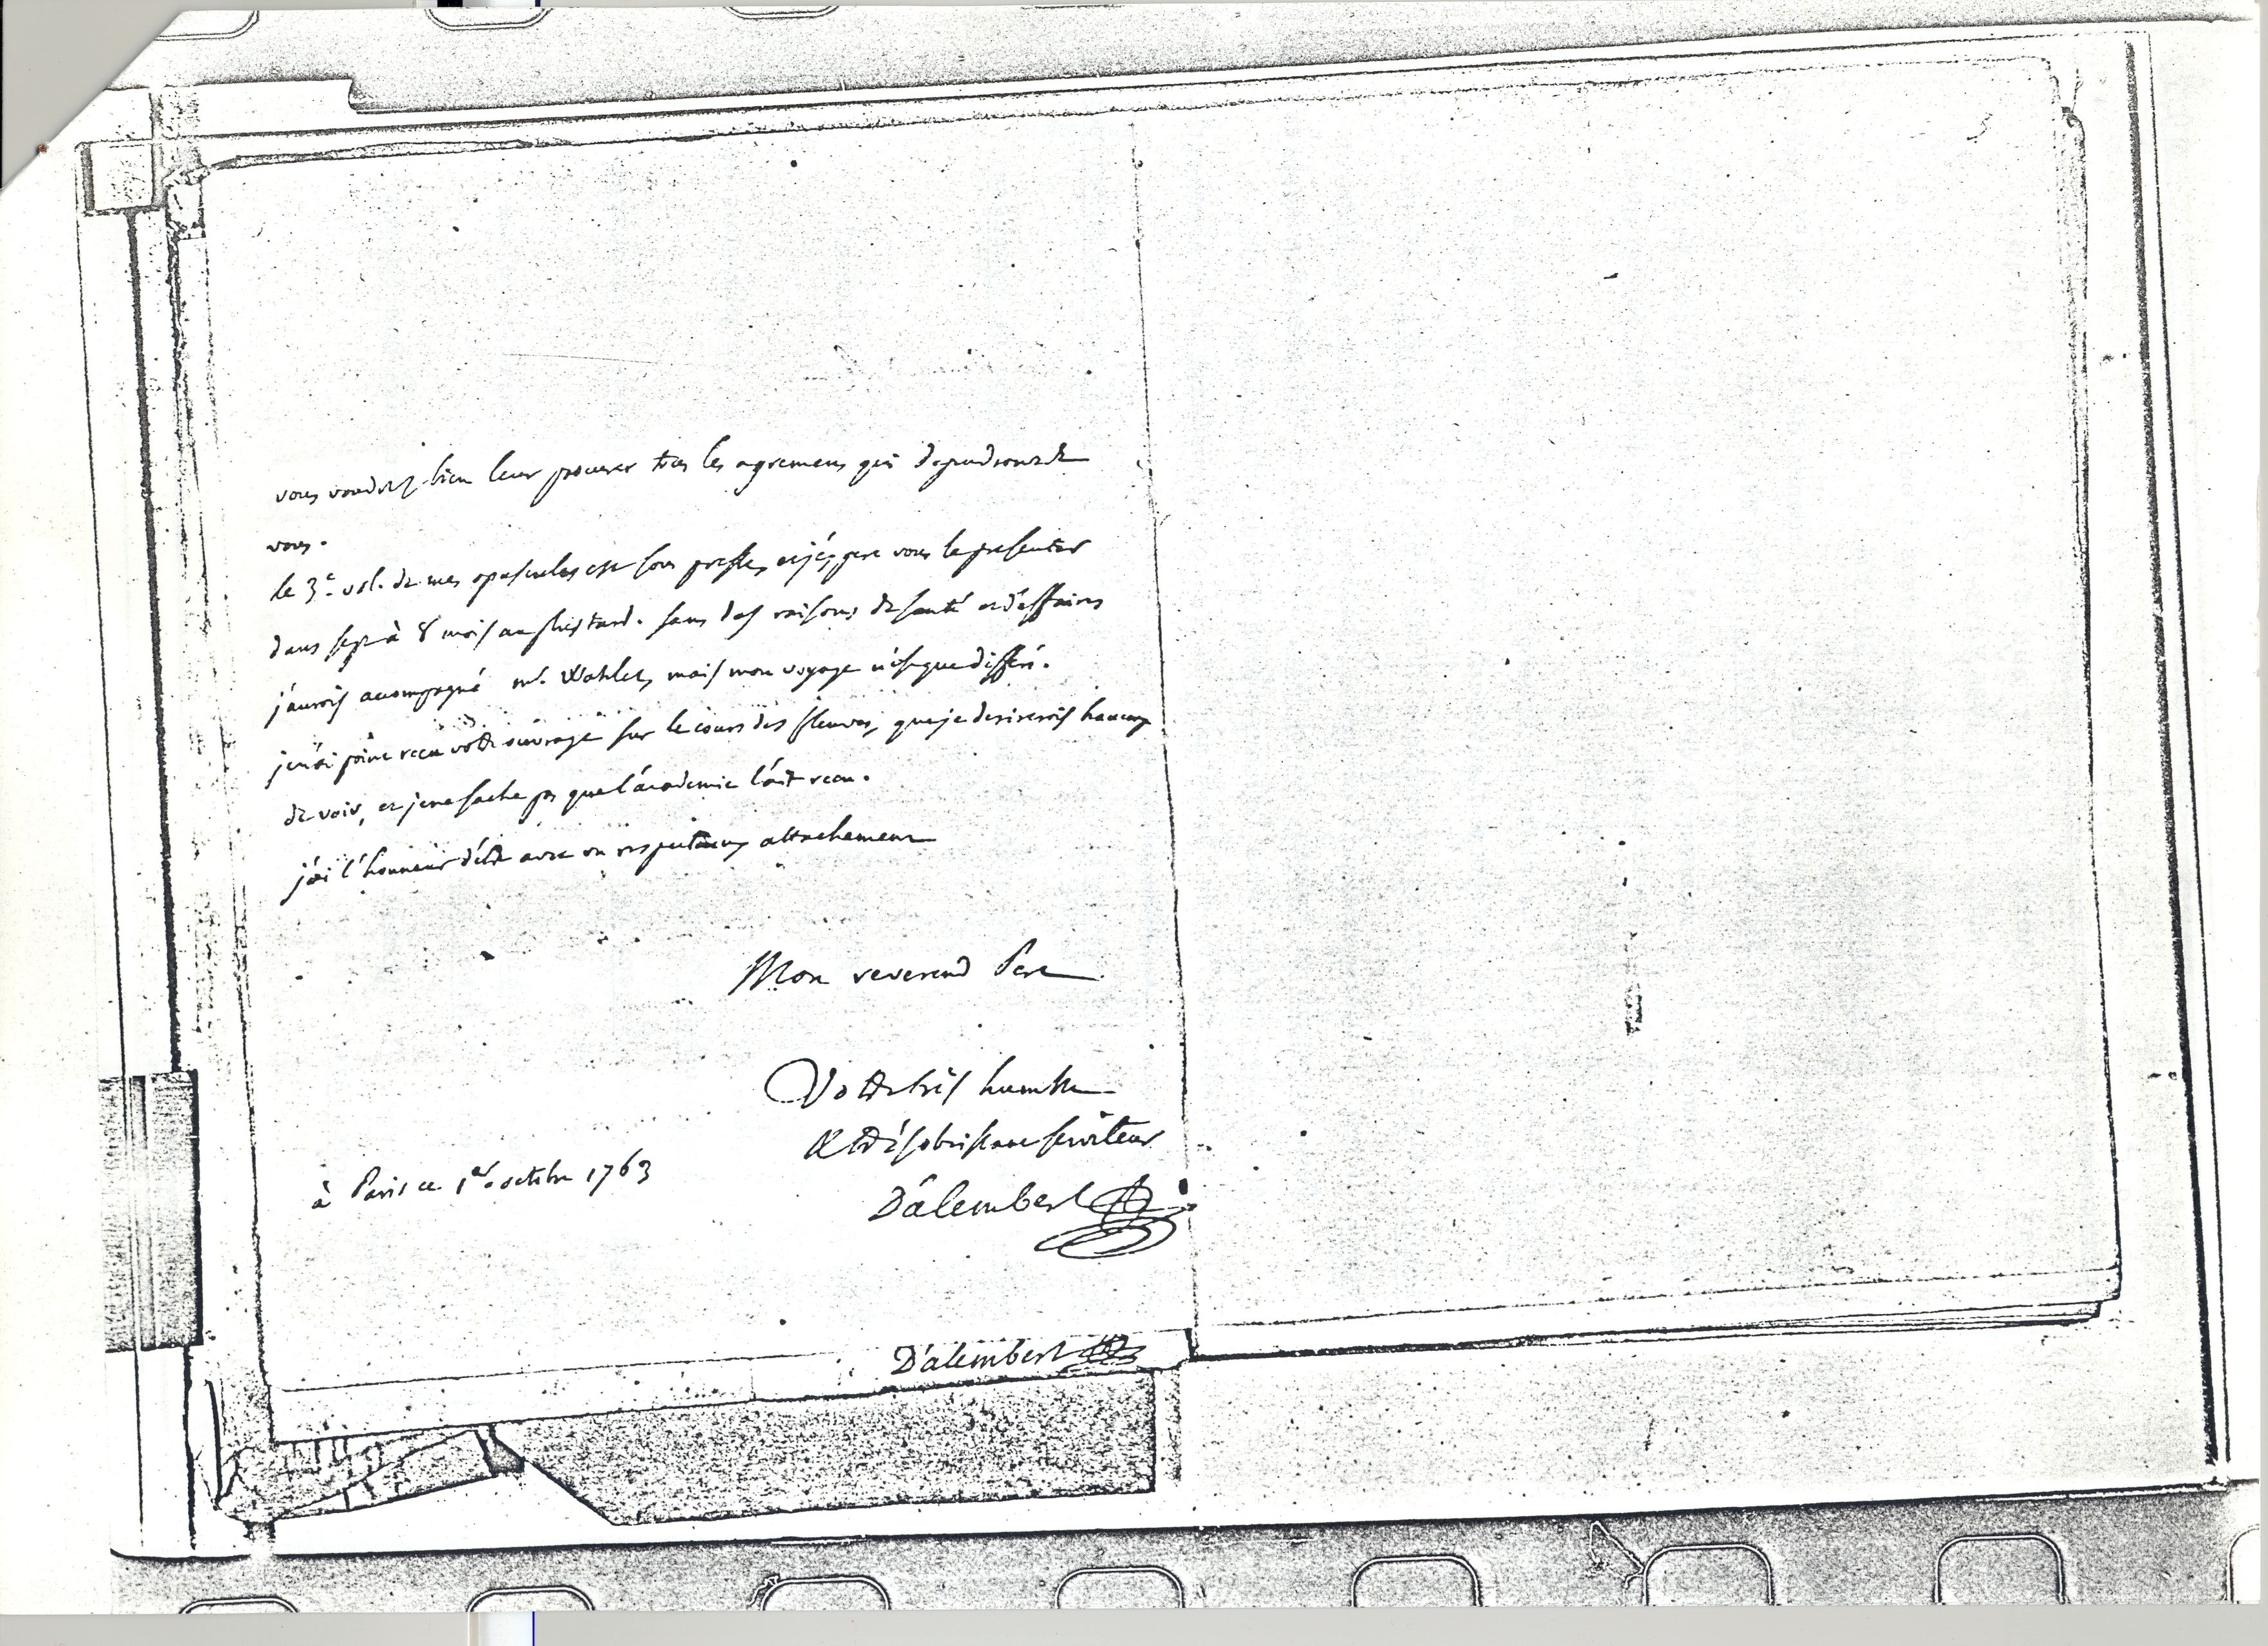 vous voudrez bien leur procurer tous les agremens qui dependront de
vous.
le 3e. vol. de mes opuscules est sous presse, et j'espere vous le presenter
dans sept à 8 mois au plus tard. sans des raisons de santé et d'affaires
j'aurois accompagné mr. Watelet, mais mon voyage n'est que differé.
je n'ai point recu votre ouvrage sur le cours des fleuves, que je desirerois beaucoup
de voir, et je ne sache pas que l'academie l'ait recu.
j'ai l'honneur d'etre avec un respectueux attachement
Mon reverend Pere
Votre très humble
& très obeissant serviteur
à Paris ce 1er. octobre 1763
D'alembert
D'alembert